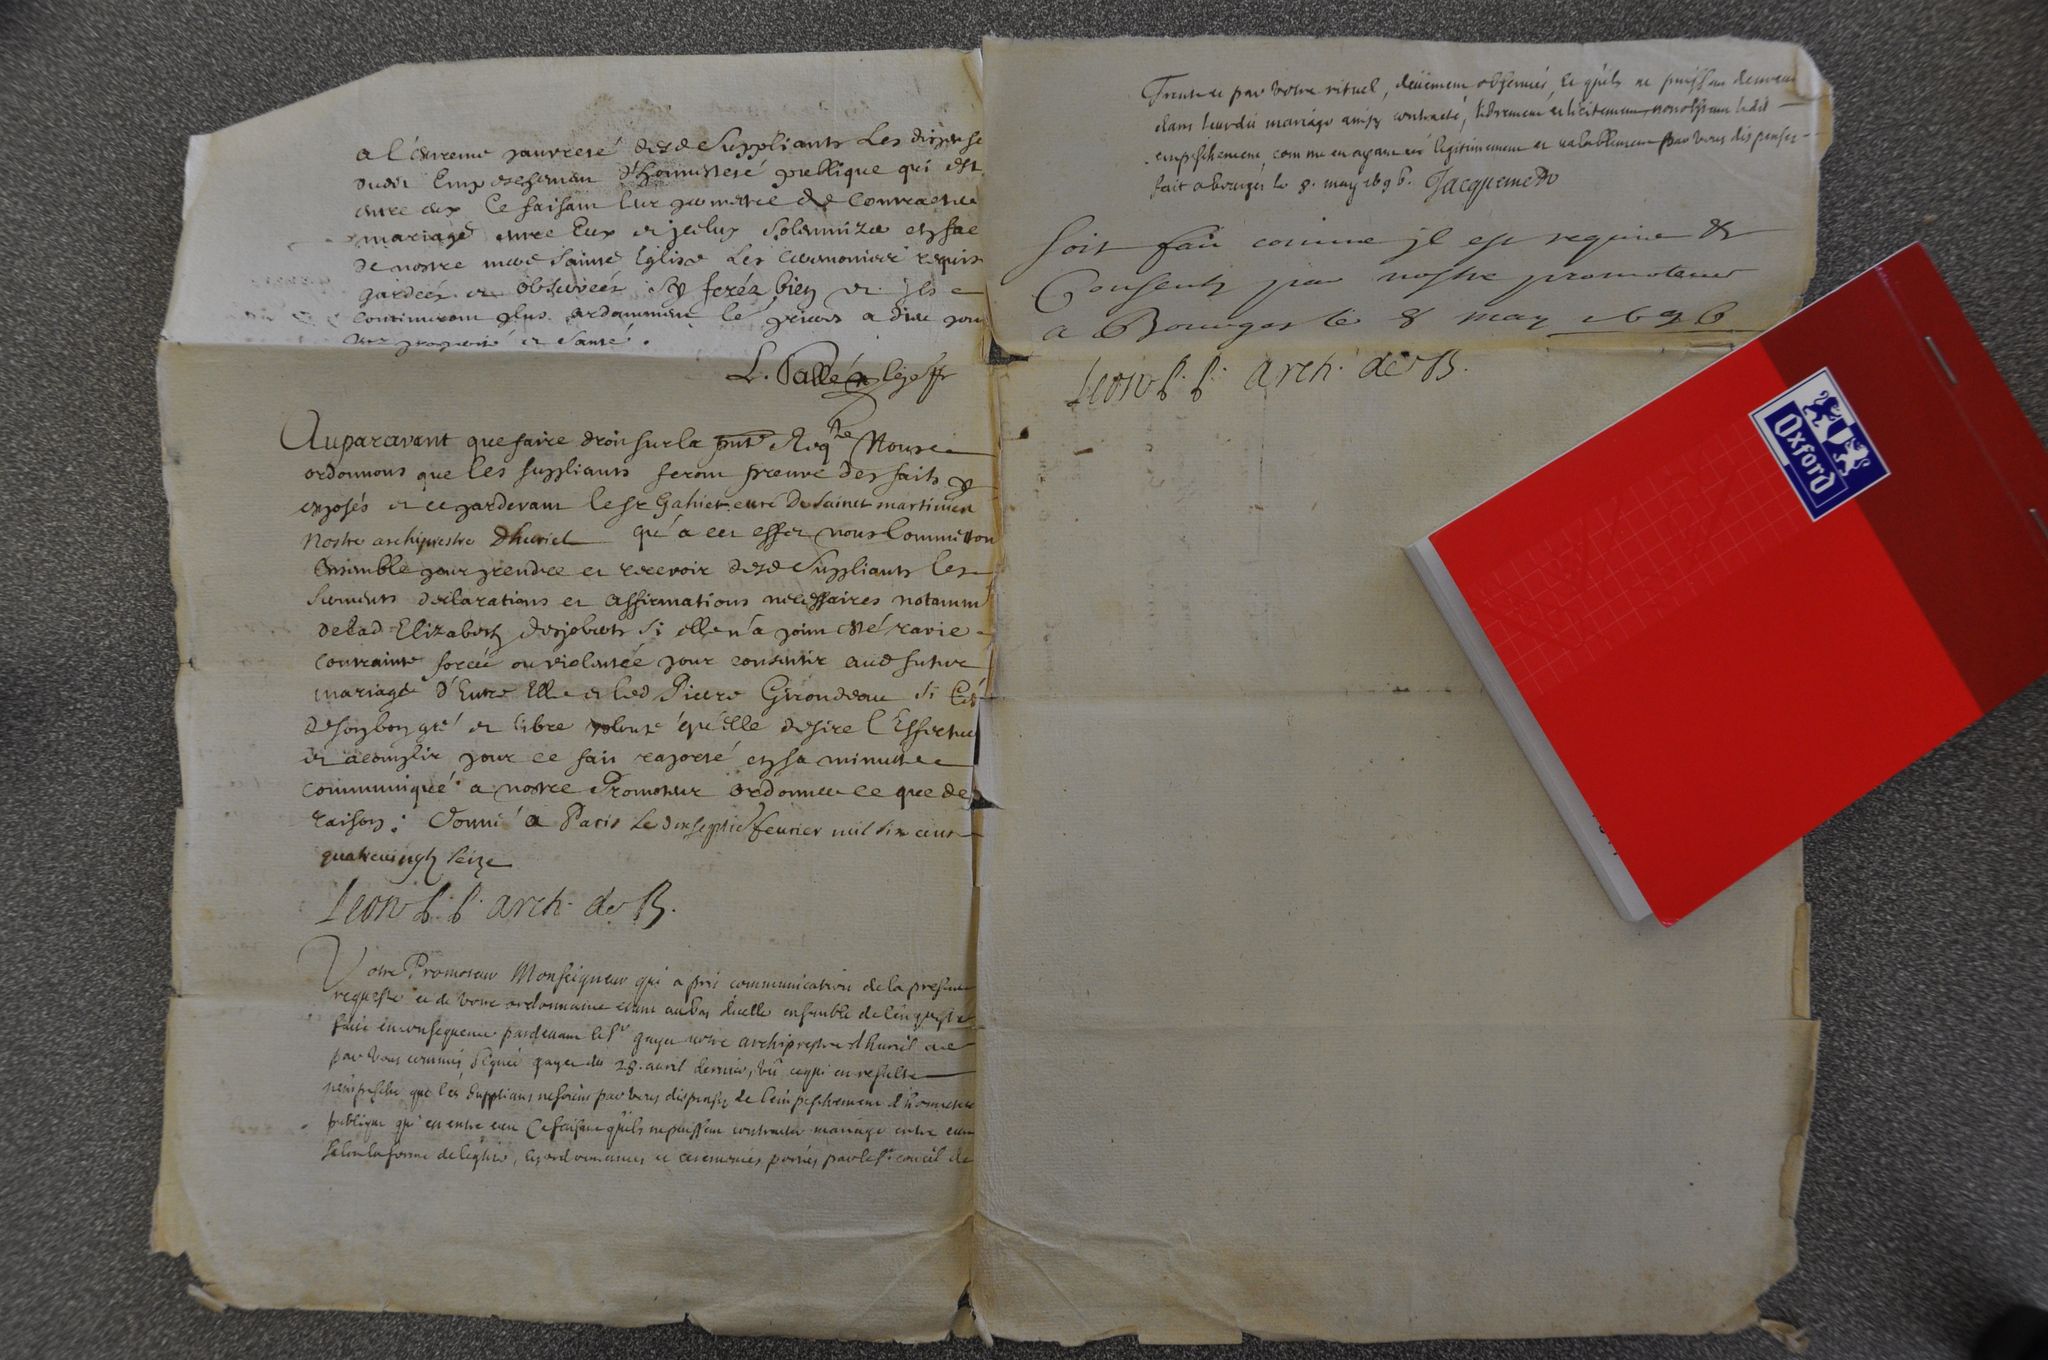 a l'extreme pauvreté desd Suppliants Les dispense
dudit Empeschement d'honnesteté publique qui est
entre eux Ce faisant leur permettre de Contracter
mariage entre Eux et jceluy solemnizer en face
de nostre mere sainte Eglise Les Ceremonies requises
gardées et observées Sy feréz bien et jls
continuront plus ardamment le prieres a dieu pour
prosperité et santé.
L. Pallé
Auparavant que faire droit sur la pnte Reqte Nous
ordonnons que les suppliants feront preuve des faits
exposés et ce pardevant le Sr Gahier curé De sainct martinien
Nostre archiprestre Dhuriel qu'a cet effet nous Commetton
Ensemble pour prendre et recevoir desd Suppliants les
Serments declarations et affirmations necessaires notamm
de lad Elizabeth desjobert Si elle n'a point esté ravie
contrainte forcée ou violentée pour consentir aud futur
mariage D'Entre Elle et led Pierre Girondeau Si C'est
de son bon gré et libre volonté qu'elle desire l'Effectuer
et acomplir pour ce fait raporté en sa minutte
communiqué a nostre Promoteur ordonner ce que de
raison; Donné a Paris le dixseptie feurier mil six cent
quatrevingt seize
Leon P. P. arch. de B.
Votre Promoteur Monseigneur qui a pris communication de la presente
requeste et de votre ordonnance étant au bas d'icelle ensemble de l'enqueste
faite en consequence pardevant le Sr gayer votre archiprestre d'huriel
par vous commis, signée gayer du 28. avril dernier, vû ce qui en resulte
n'empesche que les suppliants ne soient par vous dispensez de l'empeschement d'honnesteté
publique qui est entre eux Ce faisant qu'ils ne puissent contracter mariage entre eux
selon la forme de l'eglise, les ordonnances et ceremonies portées par le St. concil de
Trente et par votre rituel, deüement observées, et qu'ils ne puissent demeurer
dans leurdit mariage ainsy contracté, librement et licitement nonobstant ledit
empeschement, comme en ayant été legitimement et valablement par vous dispensez
fait a bourges le 8. may 1696. Jacquemet
Soit fait comme jl est requis &
Consenty par nostre promoteur
a Bourges le 8 may 1696
Leon P. P. arch. de B.
Oxford